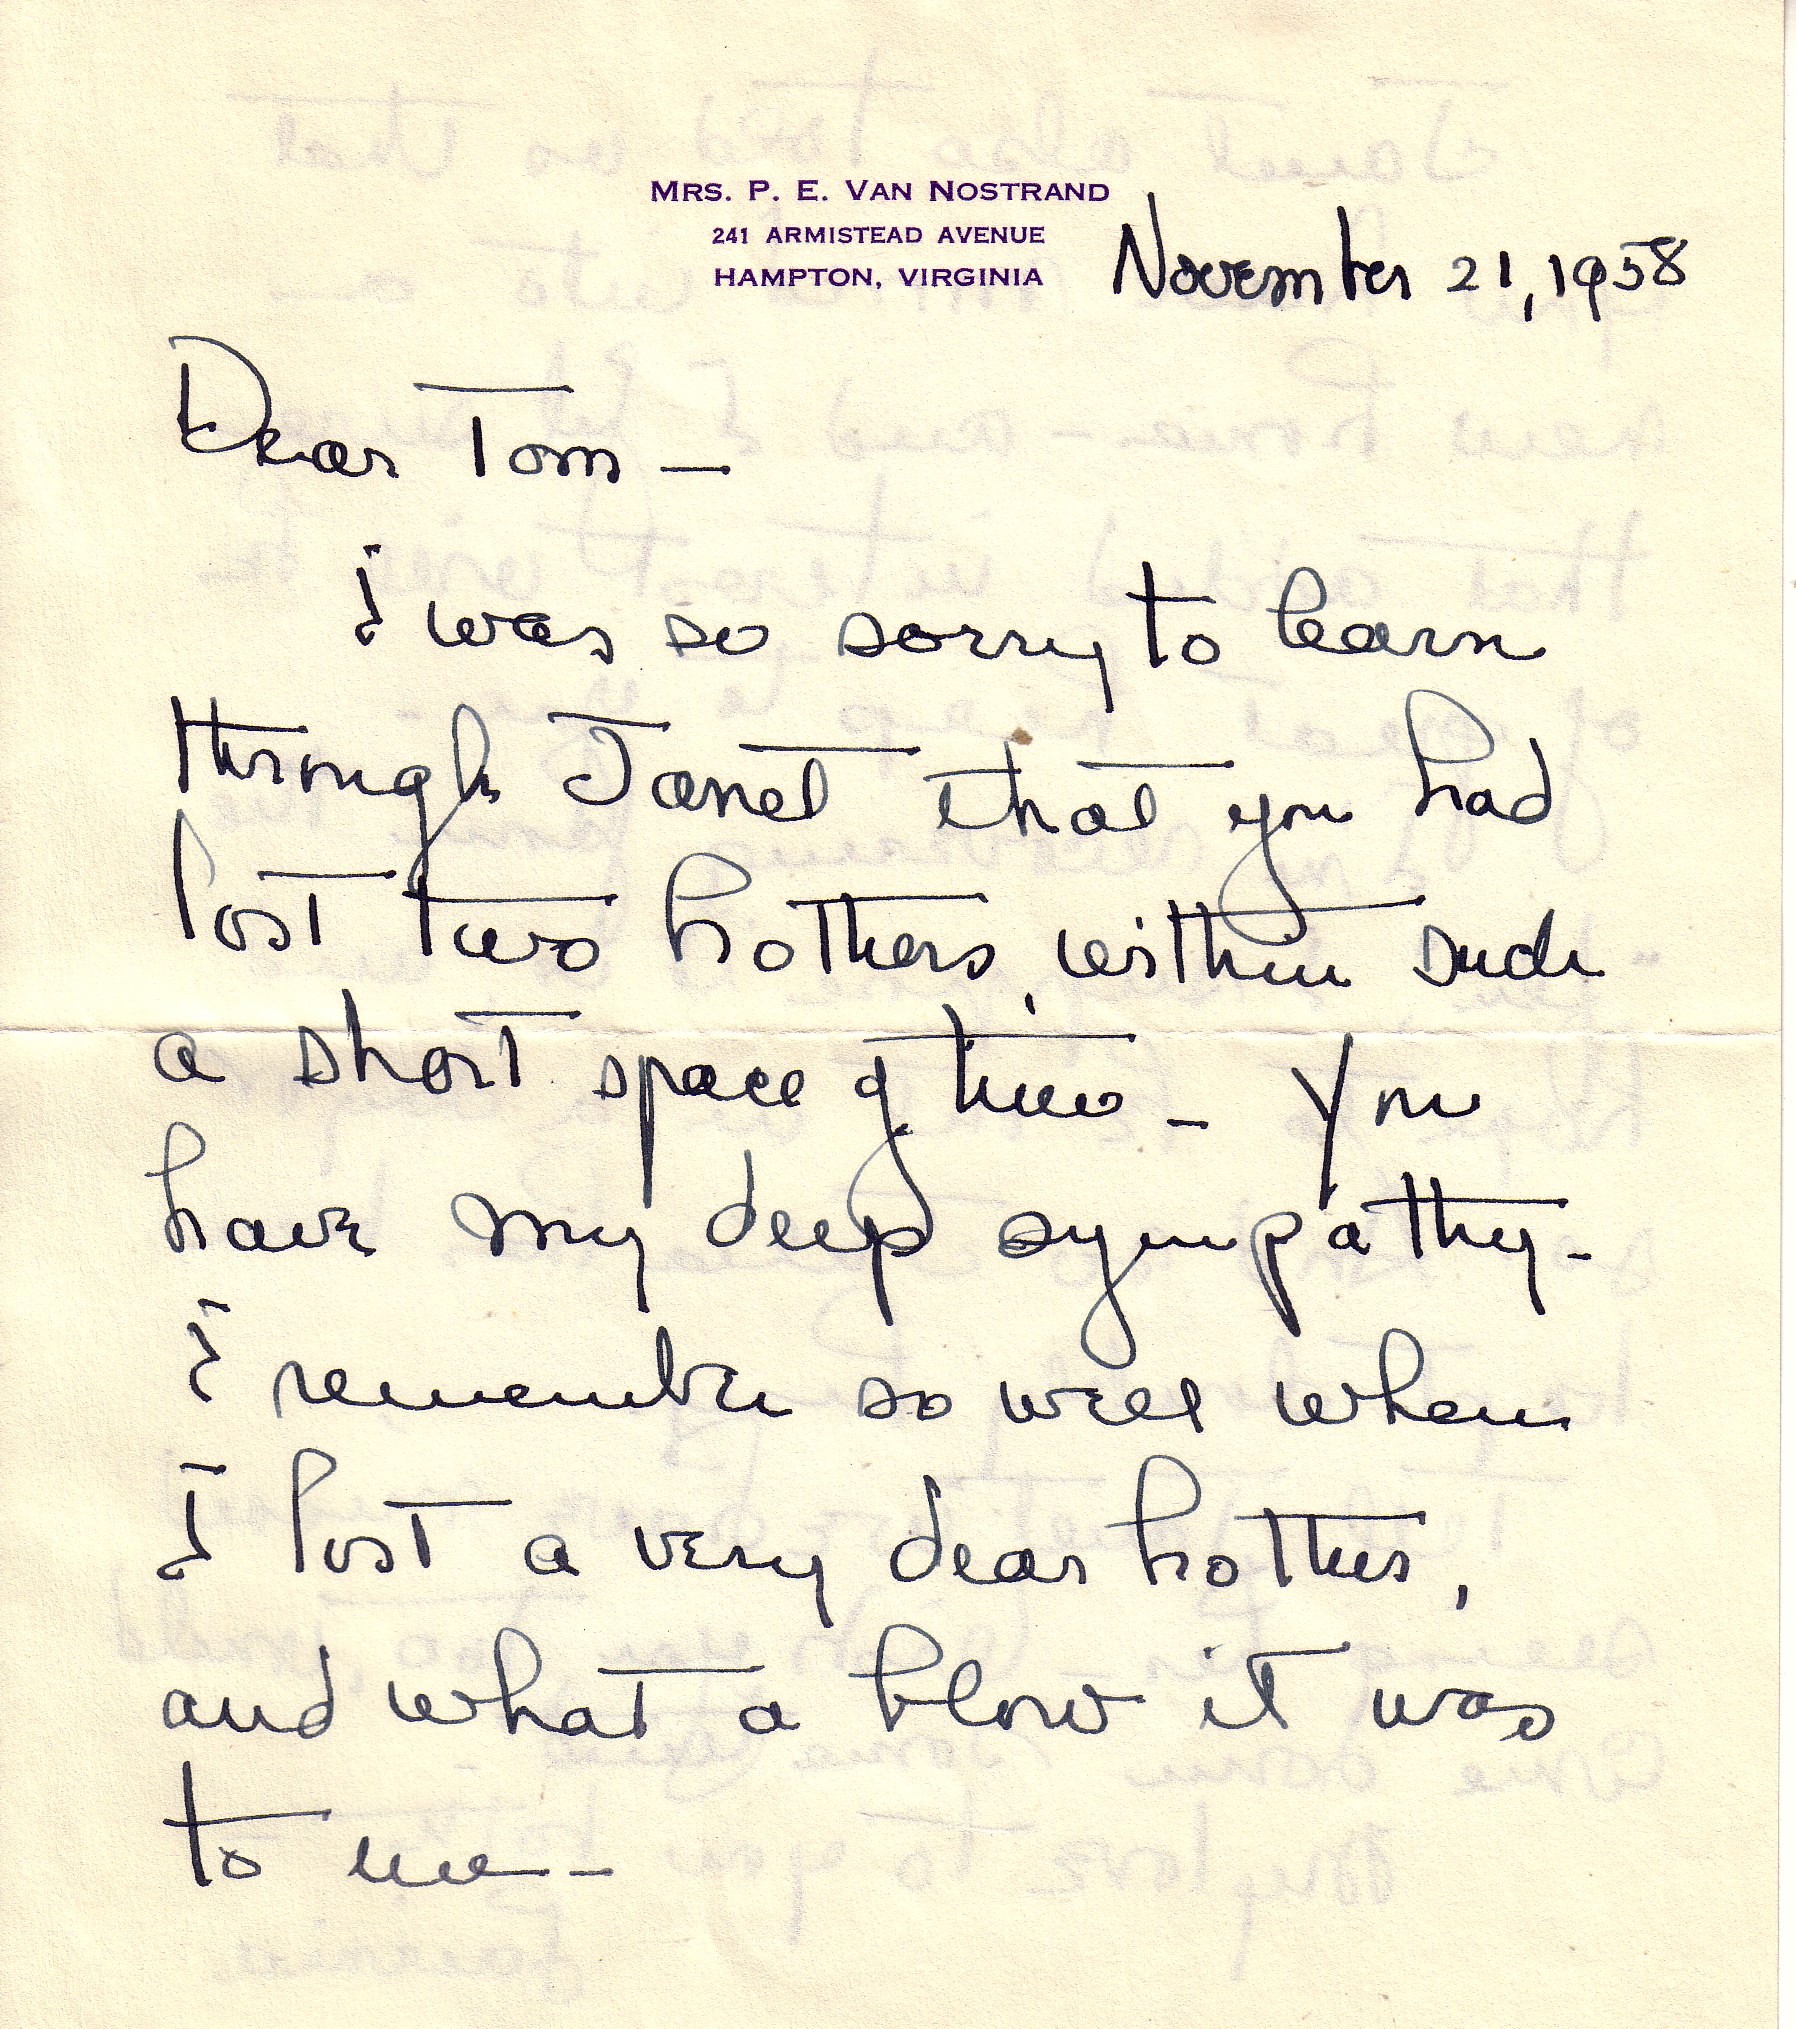 MRS. P. E. VAN NOSTRAND
241 ARMISTEAD AVENUE
HAMPTON, VIRGINIA
November 21, 1958
Dear Tom –
I was so sorry to learn
through Janet that you had
lost two brothers, within such
a short space of time – You
have my deep sympathy –
I remember so well when
I lost a very dear brother,
and what a blow it was
to me –